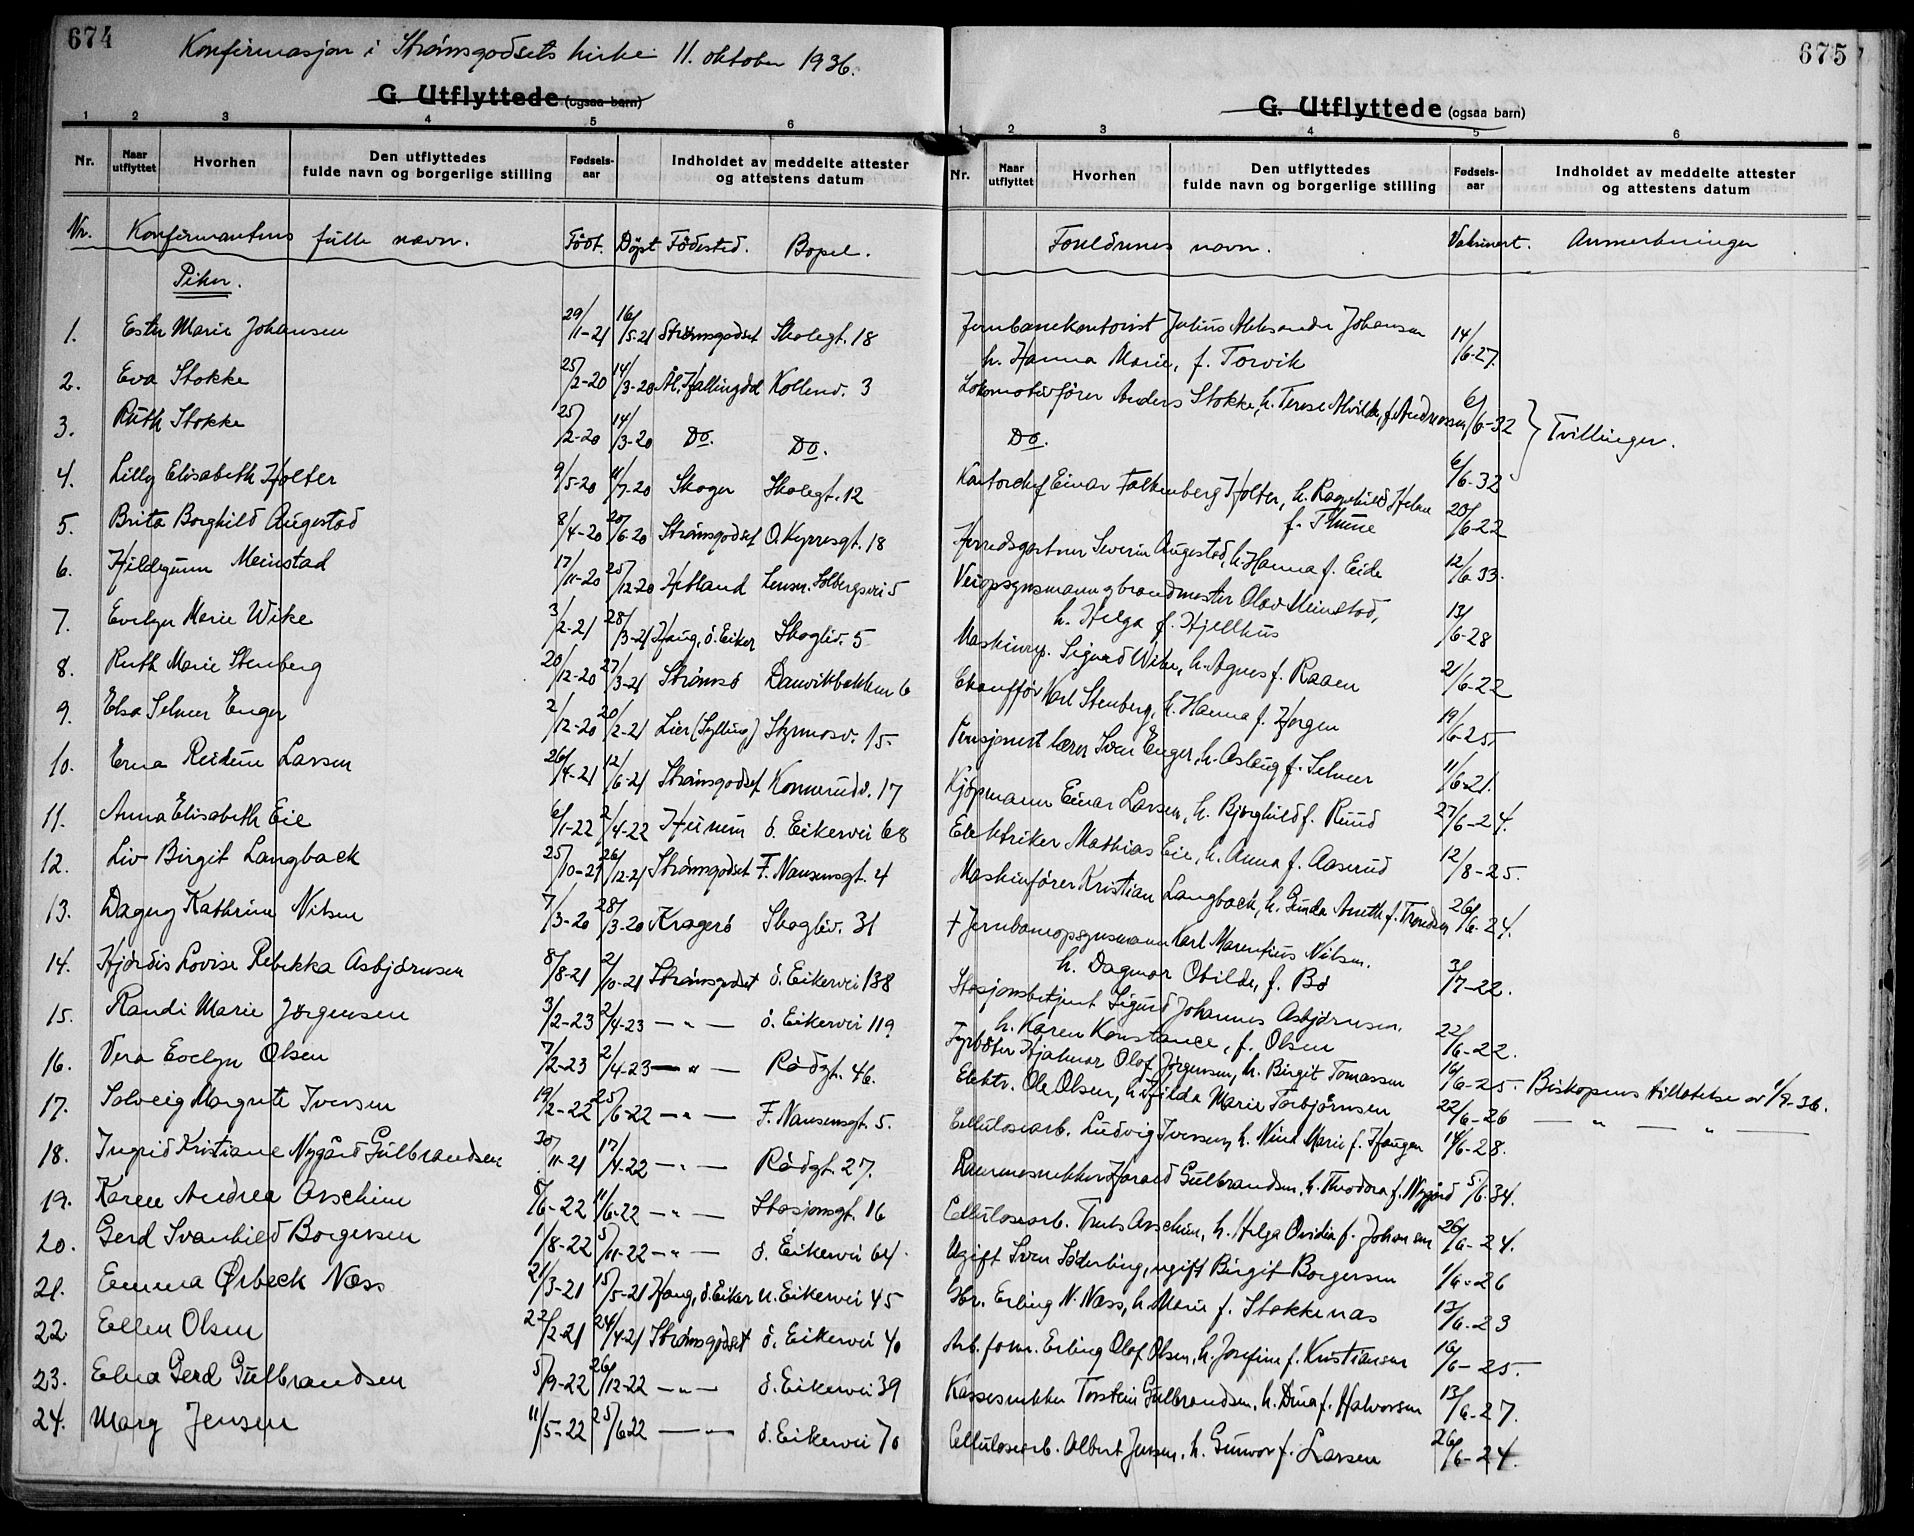 674
Konfirmasjon i Strömsgodsets kirke 11. oktober 1936.
G. Utflyttede (ogsaa barn)
1 2 3 4 5 6
Nr. Naar utflyttet Hvorhen Den utflyttedes fulde navn og borgerlige stilling Fødsels-aar Indholdet av meddelte attester og attestens datum
Nr. Konfirmantens fulle navn. Födt. Döpt Födested. Bopel.
Piker.
1. Ester Marie Johansen 29/11-21 16/5-21 Strömsgodset Skolegt. 18
2. Eva Stokke 25/2-20 14/3-20 Ål, Hallingdal Kollenv. 3
3. Ruth Stokke 25/2-20 14/3-20 Do. Do.
4. Lilly Elisabeth Holter 9/5-20 11/7-20 Skoger Skolegt. 12
5. Brita Borghild Augestad 8/4-20 20/6-20 Strömsgodset O. Kyrresgt. 18
6. Hildegunn Meinstad 17/11-20 25/12-20 Hetland Lensm. Solbergsvei 5
7. Evelyn Marie Wike 3/2-21 28/3-21 Haug, ö. Eiker Skogliv. 5
8. Ruth Marie Stenberg 20/12-20 27/3-21 Strömsö Danvikbakken 6
9. Elsa Selmer Enger 2/12-20 20/2-21 Lier (Sylling) Styrmosv. 15.
10. Erna Reidun Larsen 26/4-21 12/6-21 Strömsgodset Konnerudv. 17
11. Anna Elisabeth Eie 6/1-22 2/4-22 Hurum ö. Eikervei 68
12. Liv Birgit Langback 25/10-21 26/12-21 Strömsgodset F. Nansensgt. 4
13. Dagny Kathrine Nilsen 7/3-20 28/3-20 Kragerö Skogliv. 31
14. Hjördis Lovise Rebekka Asbjörnsen 8/8-21 2/10-21 Strömsgodset ö. Eikervei 138
15. Randi Marie Jørgensen 3/2-23 2/4-23 — " — ö. Eikervei 119
16. Vera Evelyn Olsen 7/2-23 2/4-23 — " — Rödgt. 46.
17. Solveig Margrete Iversen 19/2-22 25/6-22 — " — F. Nansensgt. 5.
18. Ingrid Kristiane Nygård Gulbrandsen 30/11-21 17/4-22 — " — Rödgt. 27.
19. Karen Andrea Arschim 8/6-22 11/6-22 — " — Stasjonsgt. 16
20. Gerd Svanhild Borgersen 1/8-22 5/11-22 — " — ö. Eikervei 64.
21. Emma Ørbeck Næss 21/3-21 15/5-21 Haug, ö. Eiker n. Eikervei 45
22 Ellen Olsen 22/2-21 24/4-21 Strömsgodset ö. Eikervei 40
23. Edna Gerd Gulbrandsen 5/9-22 26/12-22 — " — ö. Eikervei 39
24. Mary Jensen 11/5-22 25/6-22 — " — ö. Eikervei 70
675
G. Utflyttede (ogsaa barn)
1 2 3 4 5 6
Nr. Naar utflyttet Hvorhen Den utflyttedes fulde navn og borgerlige stilling Fødsels-aar Indholdet av meddelte attester og attestens datum
Foreldrenes navn. Vaksinert. Anmerkninger
Jernbanekontorist Julius Aleksander Johansen
h. Hanna Marie, f. Torvik 14/6-27.
Lokomotivförer Anders Stokke, h. Terese Alvilde, f. Andreassen 6/6-32 } Tvillinger.
Do. 6/6-32
Kontorchef Einar Falkenberg Holter, h. Ragnhild Helene
f. Thune 20/6-22
Herredsgartner Severin Augestad, h. Hanna f. Eide 12/6-33.
Veiopsynsmann og brandmester Olav Meinstad,
h. Helga f. Hjellhus 13/6-28
Maskinrep. Sigurd Wike, h. Agnes f. Raaen 21/6-22
Chauffør Karl Stenberg, h. Hanna f. Horgen 19/6-25.
Pensjonert lærer Sven Enger, h. Aslaug f. Selmer 11/6-21.
Kjöpmann Einar Larsen, h. Bjørghild f. Ruud 27/6-24.
Elektriker Mathias Eie, h. Anna f. Aaserud 12/8-25.
Maskinförer Kristian Langback, h. Gunda Aneth f. Trondsen 26/6-24.
† Jernbaneopsynsmann Karl Marentius Nilsen.
h. Dagmar Otilde, f. Bö 3/7-22.
Stasjonsbetjent Sigurd Johannes Asbjörnsen,
h. Karen Konstance, f. Olsen 22/6-22.
Fyrböter Hjalmar Olaf Jørgensen, h. Birgit Tomassen 16/6-25. Biskopens tillatelse av 1/9-36.
Elektr. Ole Olsen, h. Hilda Marie Torbjörnsen 22/6-26 — " — " —
Cellulosearb. Ludvig Iversen, h. Nina Marie f. Haugen 14/6-28.
Rammesnekker Harald Gulbrandsen, h. Theodora f. Nygård 5/6-34.
Cellulosearb. Truls Arschim, h. Helga Ovidia f. Johansen 26/6-24.
Ugift Sven Söderling, ugift Birgit Borgersen 1/6-26
Gbr. Erling N. Næss, h. Marie f. Stokkenæs 13/6-23
Arb.form. Erling Olaf Olsen, h. Josefine f. Kristiansen 16/6-25.
Kassesnekker Torstein Gulbrandsen, h. Dina f. Halvorsen 13/6-27.
Cellulosearb. Albert Jensen, h. Gunvor f. Larsen 26/6-24.